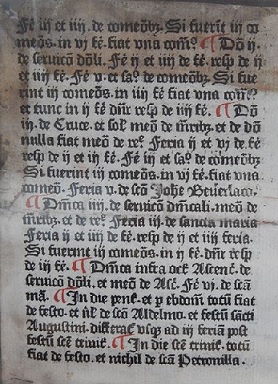 Fé iij et iiij. de comeōbȝ. Si fuerīt iij co
meōs. in vj ké. fiat vna com̄. ¶ Dn̄ ij.
de seruicō dn̄li. Fé ij et iij de ké. resp de ij
et iij ké. Fé v. et saƀ. de comeōbȝ. Si fue
rint iij comeōs. in iij ké. fiat vna com̄.
et tunc in ij ké. dn̄r resp de iij ké. ¶ Dn̄
iij. de Cruce. et sol' meō de m̄ribȝ. et de dn̄
nulla fiat meō de ré. Feria ij et vj de ké.
resp de ij et iij ké. Fé iij et saƀ. de comeōbȝ
Si fuerint iij comeōs in vj ké. fiat vna
comeō. Feria v. de scō Johē Beuerlaco.
¶ Dn̄ica iiij. de seruicō dn̄icali. meō de
m̄ribȝ. et de ré. Feria iij. de sancta maria
Feria ij et iiij de ké. resp de ij et iiij feria.
Si fuerint iij comeōs. in ij ké. dn̄r resp
de iij ké. ¶ Dn̄ica infra oct̄. Ascenc̄. de
seruicō dn̄li. et meō de Asc̄. Fé vj. de scā
mā. ¶ In die pent̄. et p ebdom̄. totū fiat
de festo. et n̄l de scō Aldelmo. et festū sācti
Augustini. differat̄ vsqȝ ad iij feriā post
festū scē trinit̄. ¶ In die scē trinit̄. totum
fiat de festo. et nichil de scā Petronilla.